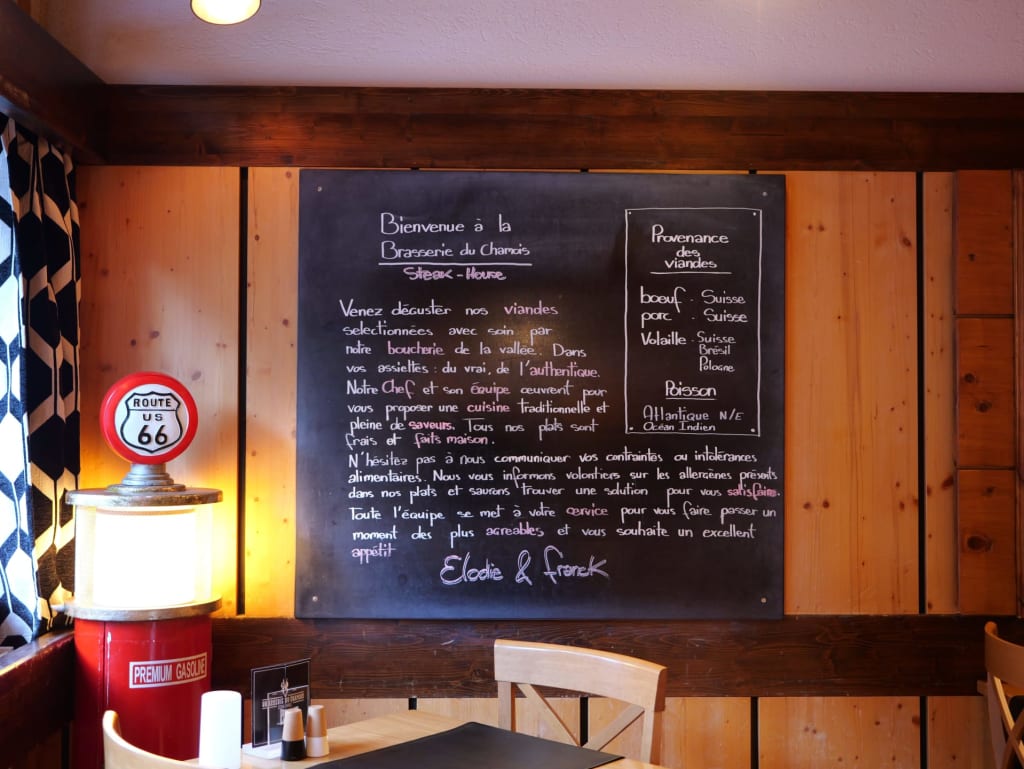 Bienvenue à la
Brasserie du Chamois
Steak - House
Venez déguster nos viandes
selectionnées avec soin par
notre boucherie de la vallée. Dans
vos assiettes : du vrai, de l'authentique.
Notre Chef et son équipe œuvrent pour
vous proposer une cuisine traditionnelle et
pleine de saveurs. Tous nos plats sont
frais et faits maison.
N'hésitez pas à nous communiquer vos contraintes ou intolérances
alimentaires. Nous vous informons volontiers sur les allergènes présents
dans nos plats et saurons trouver une solution pour vous satisfaire.
Toute l'équipe se met à votre service pour vous faire passer un
moment des plus agreables et vous souhaite un excellent
appétit
Elodie & Franck
Provenance
des
viandes
bœuf . Suisse
porc . Suisse
Volaille . Suisse
Brésil
Pologne
Poisson
Atlantique N/E
Océan Indien
ROUTE
US
66
PREMIUM GASOLINE